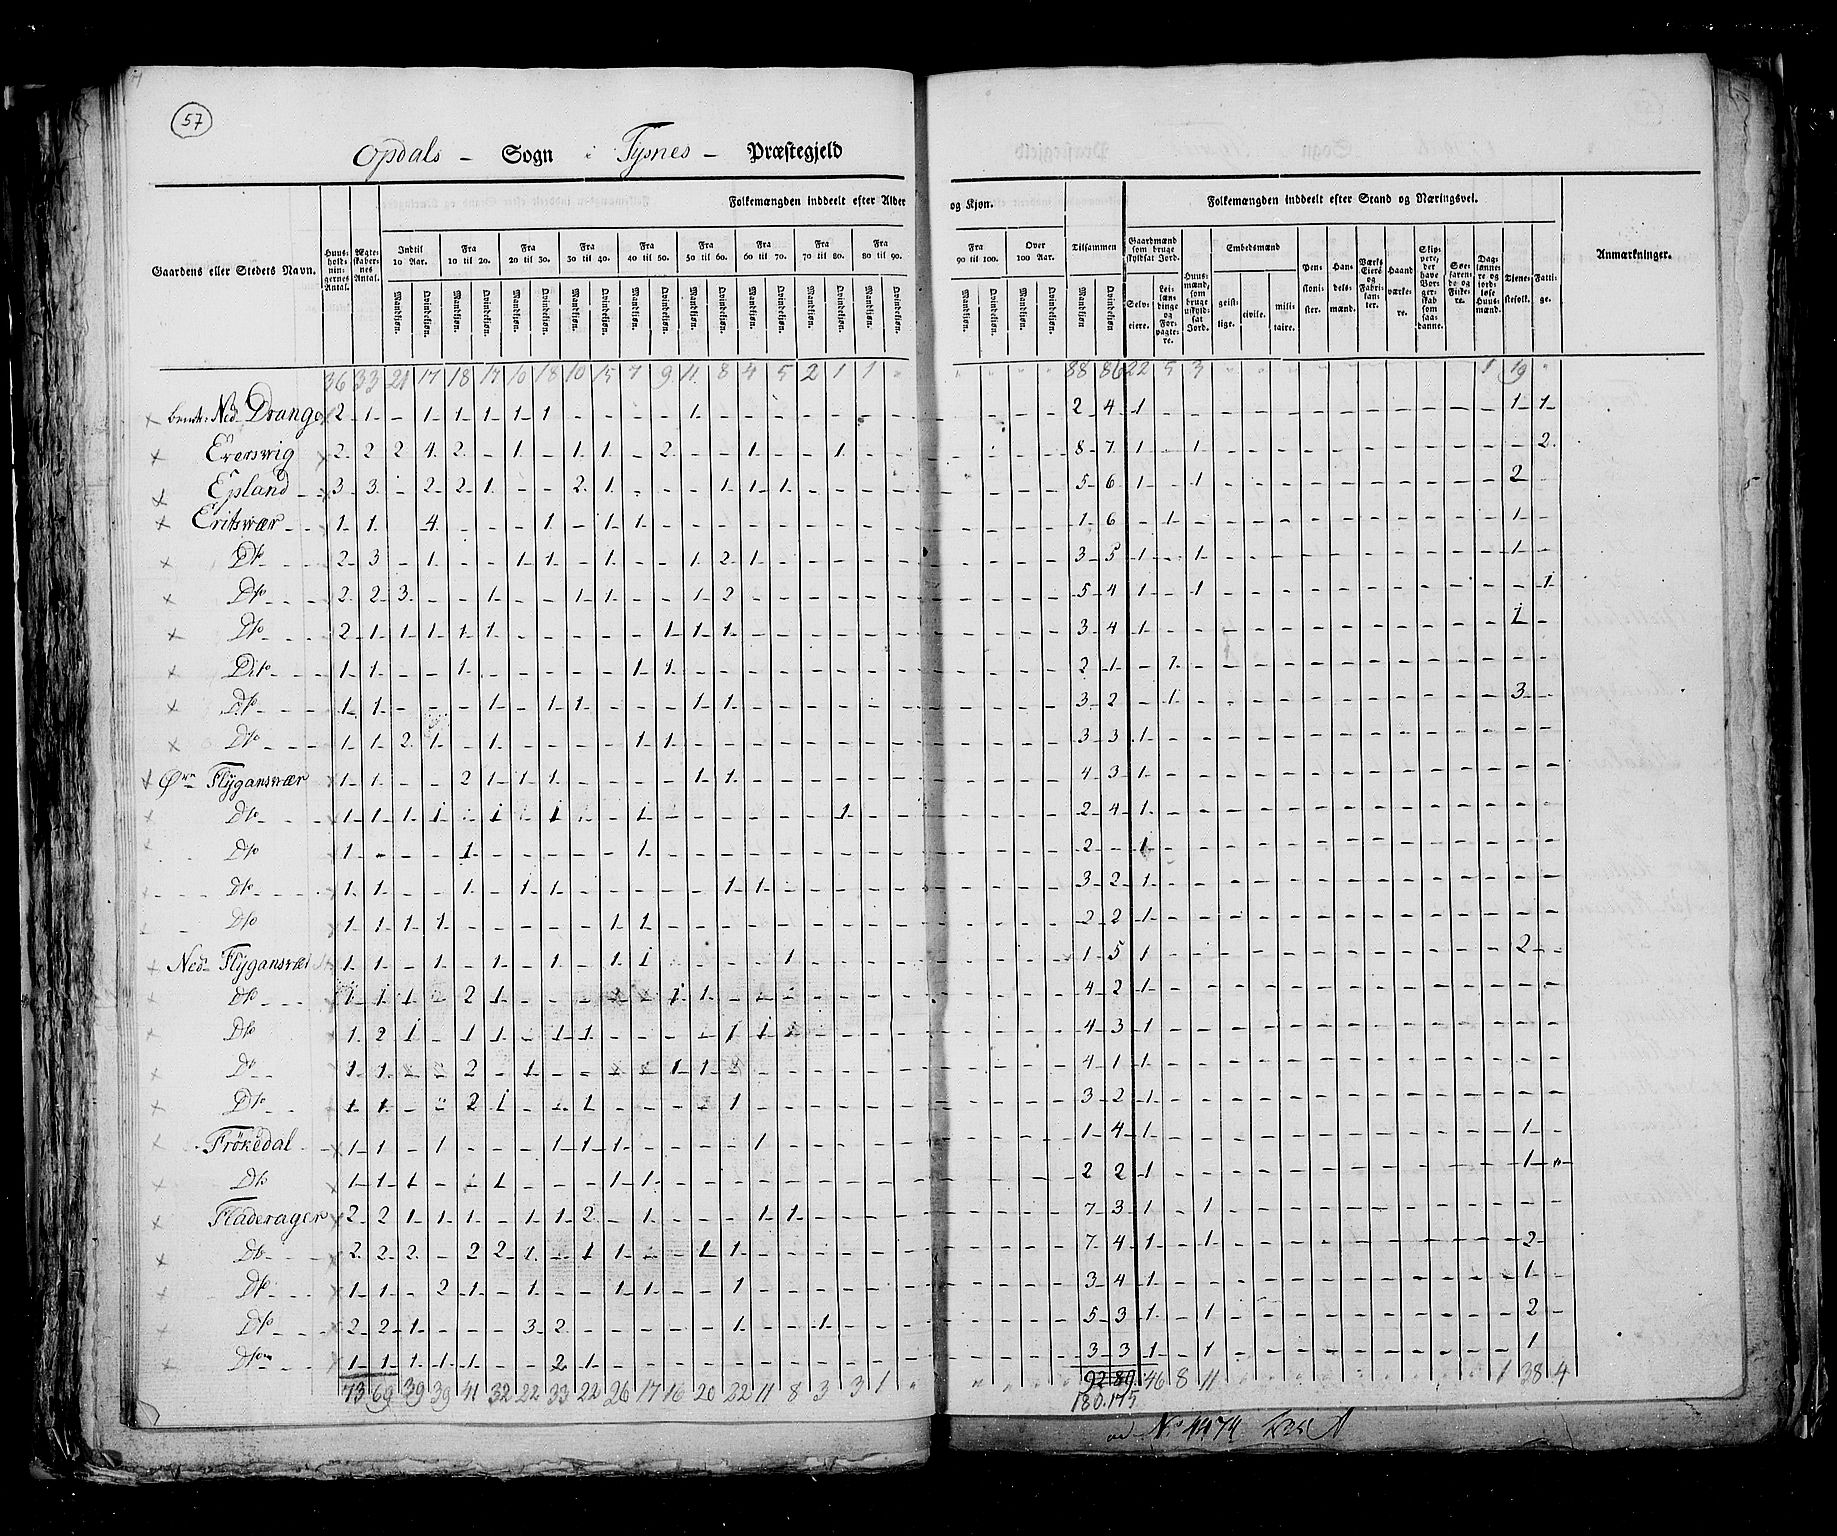 57
Opdals – Sogn i Tysnes – Præstegjeld
Folkemængden inddeelt efter Alder og Kjøn.
Folkemængden inddeelt efter Stand og Næringsvei.
Gaardens eller Stedets Navn.
Huusholdningernes Antal.
Ægteskabernes Antal.
Indtil 10 Aar.
Fra 10 til 20.
Fra 20 til 30.
Fra 30 til 40.
Fra 40 til 50.
Fra 50 til 60.
Fra 60 til 70.
Fra 70 til 80.
Fra 80 til 90.
Fra 90 til 100.
Over 100 Aar.
Tilsammen
Mandkjøn. Qvindekjøn.
Gaardmænd som bruge skyldsat Jord.
Selveiere.
Leilændinge og Forpagtere.
Huusmænd, som bruge uskyldsat Jord.
Embedsmænd
geistlige. civile. militaire.
Pensionister.
Handelsmænd.
Værks Eiere og Fabrikanter.
Haandværkere.
Skippere, der have Borgerskab som saadanne.
Søefarende og Fiskere.
Daglønnere og jordløse Huusmænd.
Tjenestefolk.
Fattige.
Anmærkninger.
36 33 21 17 18 17 10 18 10 15 7 9 11 8 4 5 2 1 1 " 88 86 22 5 3 1 19 "
Ned Drange 2 1 – 1 1 1 1 1 – – – – 1 – – – – – – 2 4 1 1 1
Eversvig 2 2 2 4 2 – 1 – 1 1 – 2 – – 1 – – 1 – 8 7 1 – 1 2
Epland 3 3 – 2 2 1 – – 2 1 – – – 1 1 1 – – – 5 6 1 – 1 2 –
Eritsvær 1 1 4 – – – 1 – 1 1 – – – – – – – – 1 6 – 1 – 1 –
Dto 2 3 – 1 – – 1 1 – 1 – – 1 2 1 – – – – 3 5 1 – 1 1 –
Dto 2 2 3 – – 1 – – 1 1 – – 1 2 – – – – – 5 4 1 – 1 – 1
Dto 2 1 1 1 1 1 – – – – – 1 1 1 – – – – – 3 4 1 1 –
Dito 1 1 – – 1 – – – – – 1 1 – – – – – – – 2 1 – 1 – –
Dto 1 1 – – – 1 – 1 1 – – – 1 1 – – – – – 3 2 – 1 3 –
Dto 1 1 2 1 – 1 – – – – 1 1 – – – – – – – 3 3 1 – –
Øvre Flÿgansvær 1 1 – – 2 1 1 1 – – – – 1 1 – – – – – 4 3 1 – –
Dto 1 1 1 1 – 1 – 1 – – 1 – – – – – – 1 – 2 4 1 – –
Dto 1 – – – 1 – – – – – 1 – – – – – – – – 2 – 1 – –
Dto 1 1 – – 1 – 1 1 – – – – – 1 1 – – – – 3 2 1 – –
Dto 1 1 1 1 – – – – – 1 1 – – – – – – – – 2 2 1 – –
Ned Flÿgansvær 1 1 – 1 – 1 – 1 – 1 1 – – – – 1 – – – 1 5 1 2 –
Dto 4 2 1 – –
Dto 4 3 1 – –
Dto 4 1 1 – –
Dto 3 2 1 – –
Frökedal 1 1 – 1 – – – 1 1 1 – – – – 1 – – – – 1 4 1 1 –
Dto 1 1 1 – – 1 – – – 1 1 – – – – – – – – 2 2 1 1 "
Fladerager 2 2 1 1 1 – 1 1 2 – 1 – – – 1 1 – – – 7 3 1 – 1 – –
Dto 2 2 2 – 2 2 1 – 1 1 – – 1 1 – – – – – 7 4 1 – 1 2
Dto 1 1 – 2 1 – 1 – – 1 1 – – 1 – – – – – 3 4 1 1 –
Dto 2 2 1 – – – 3 2 – – – – – 1 – – 1 – – 5 3 1 – 1 2 –
Dto 1 1 1 1 1 – – 2 1 – – – – – – – – – – 3 3 1 – 1 1 –
73 69 39 39 41 32 22 33 22 26 17 16 20 22 11 8 3 3 1 " 92 89 46 8 11 1 38 4
180. 175
No 1474